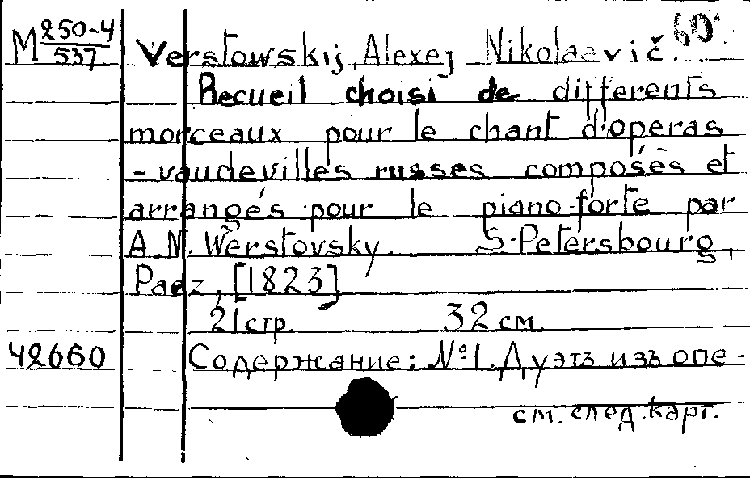 M 250-4/537 Verstowskij, Alexej Nikolaevič. 60.
Recueil choisi de differents
morceaux pour le chant d'operas
-vaudevilles russes composés et
arrangés pour le piano-forte par
A.N. Werstovsky. S-Petersbourg,
Paez, [1823]
21 стр. 32 см.
42660 Содержание: №1. Дуэтъ изъ опе-
см. след. карт.